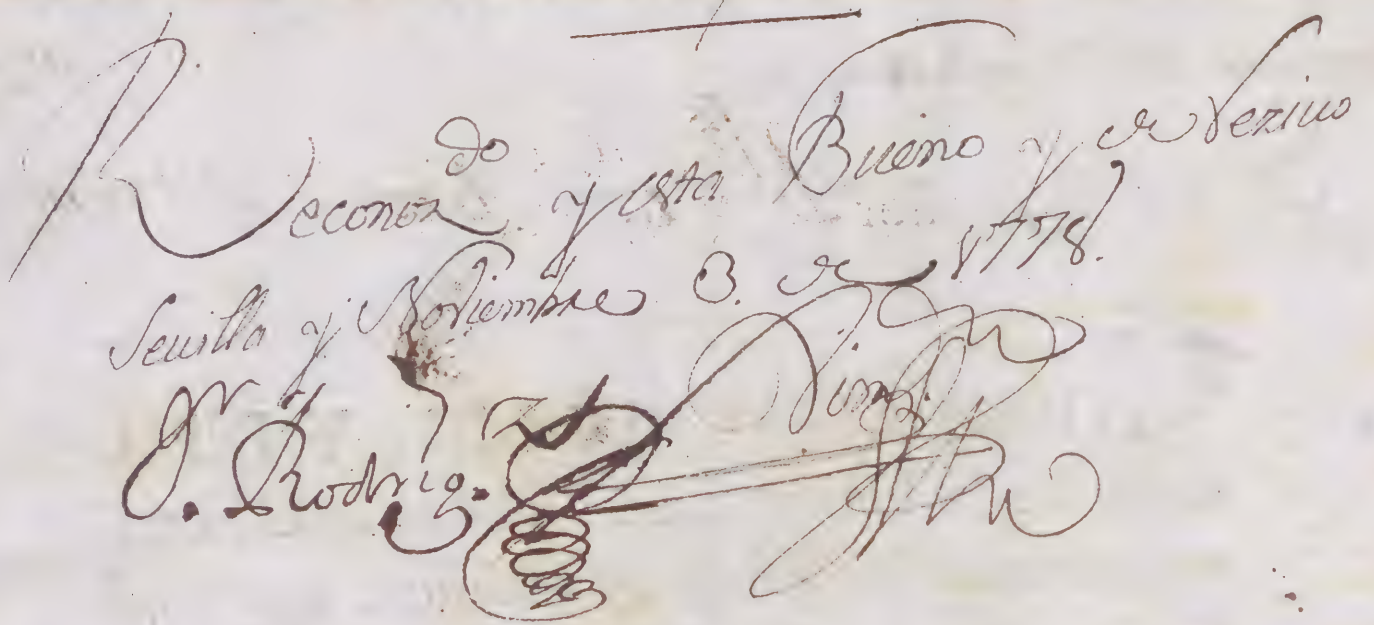 Reconoz.do y esta Bueno y de Vezino
Sevilla y Noviembre 3. de 1778.
Rodrig.z